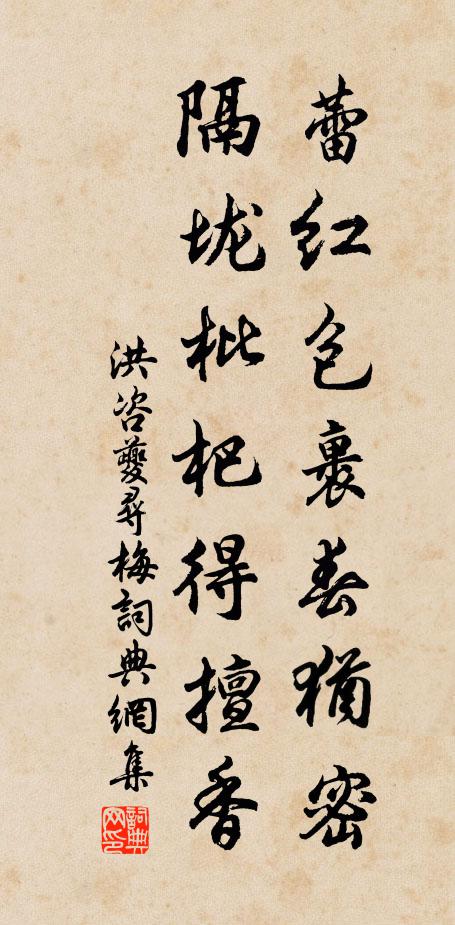 蕾红包裹春犹密
隔垅枇杷得擅香
洪咨夔尋梅詞典網集
詞典網印